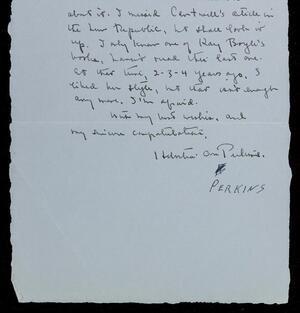 about it. I missed Cantwell's article in
the New Republic, but shall look it
up. I only know one of Kay Boyle's
books, haven't read this last one.
At that time, 2-3-4 years ago, I
liked her style, but that isn't enough
any more, I'm afraid.
With my best wishes, and
my sincere congratulations,
PERKINS